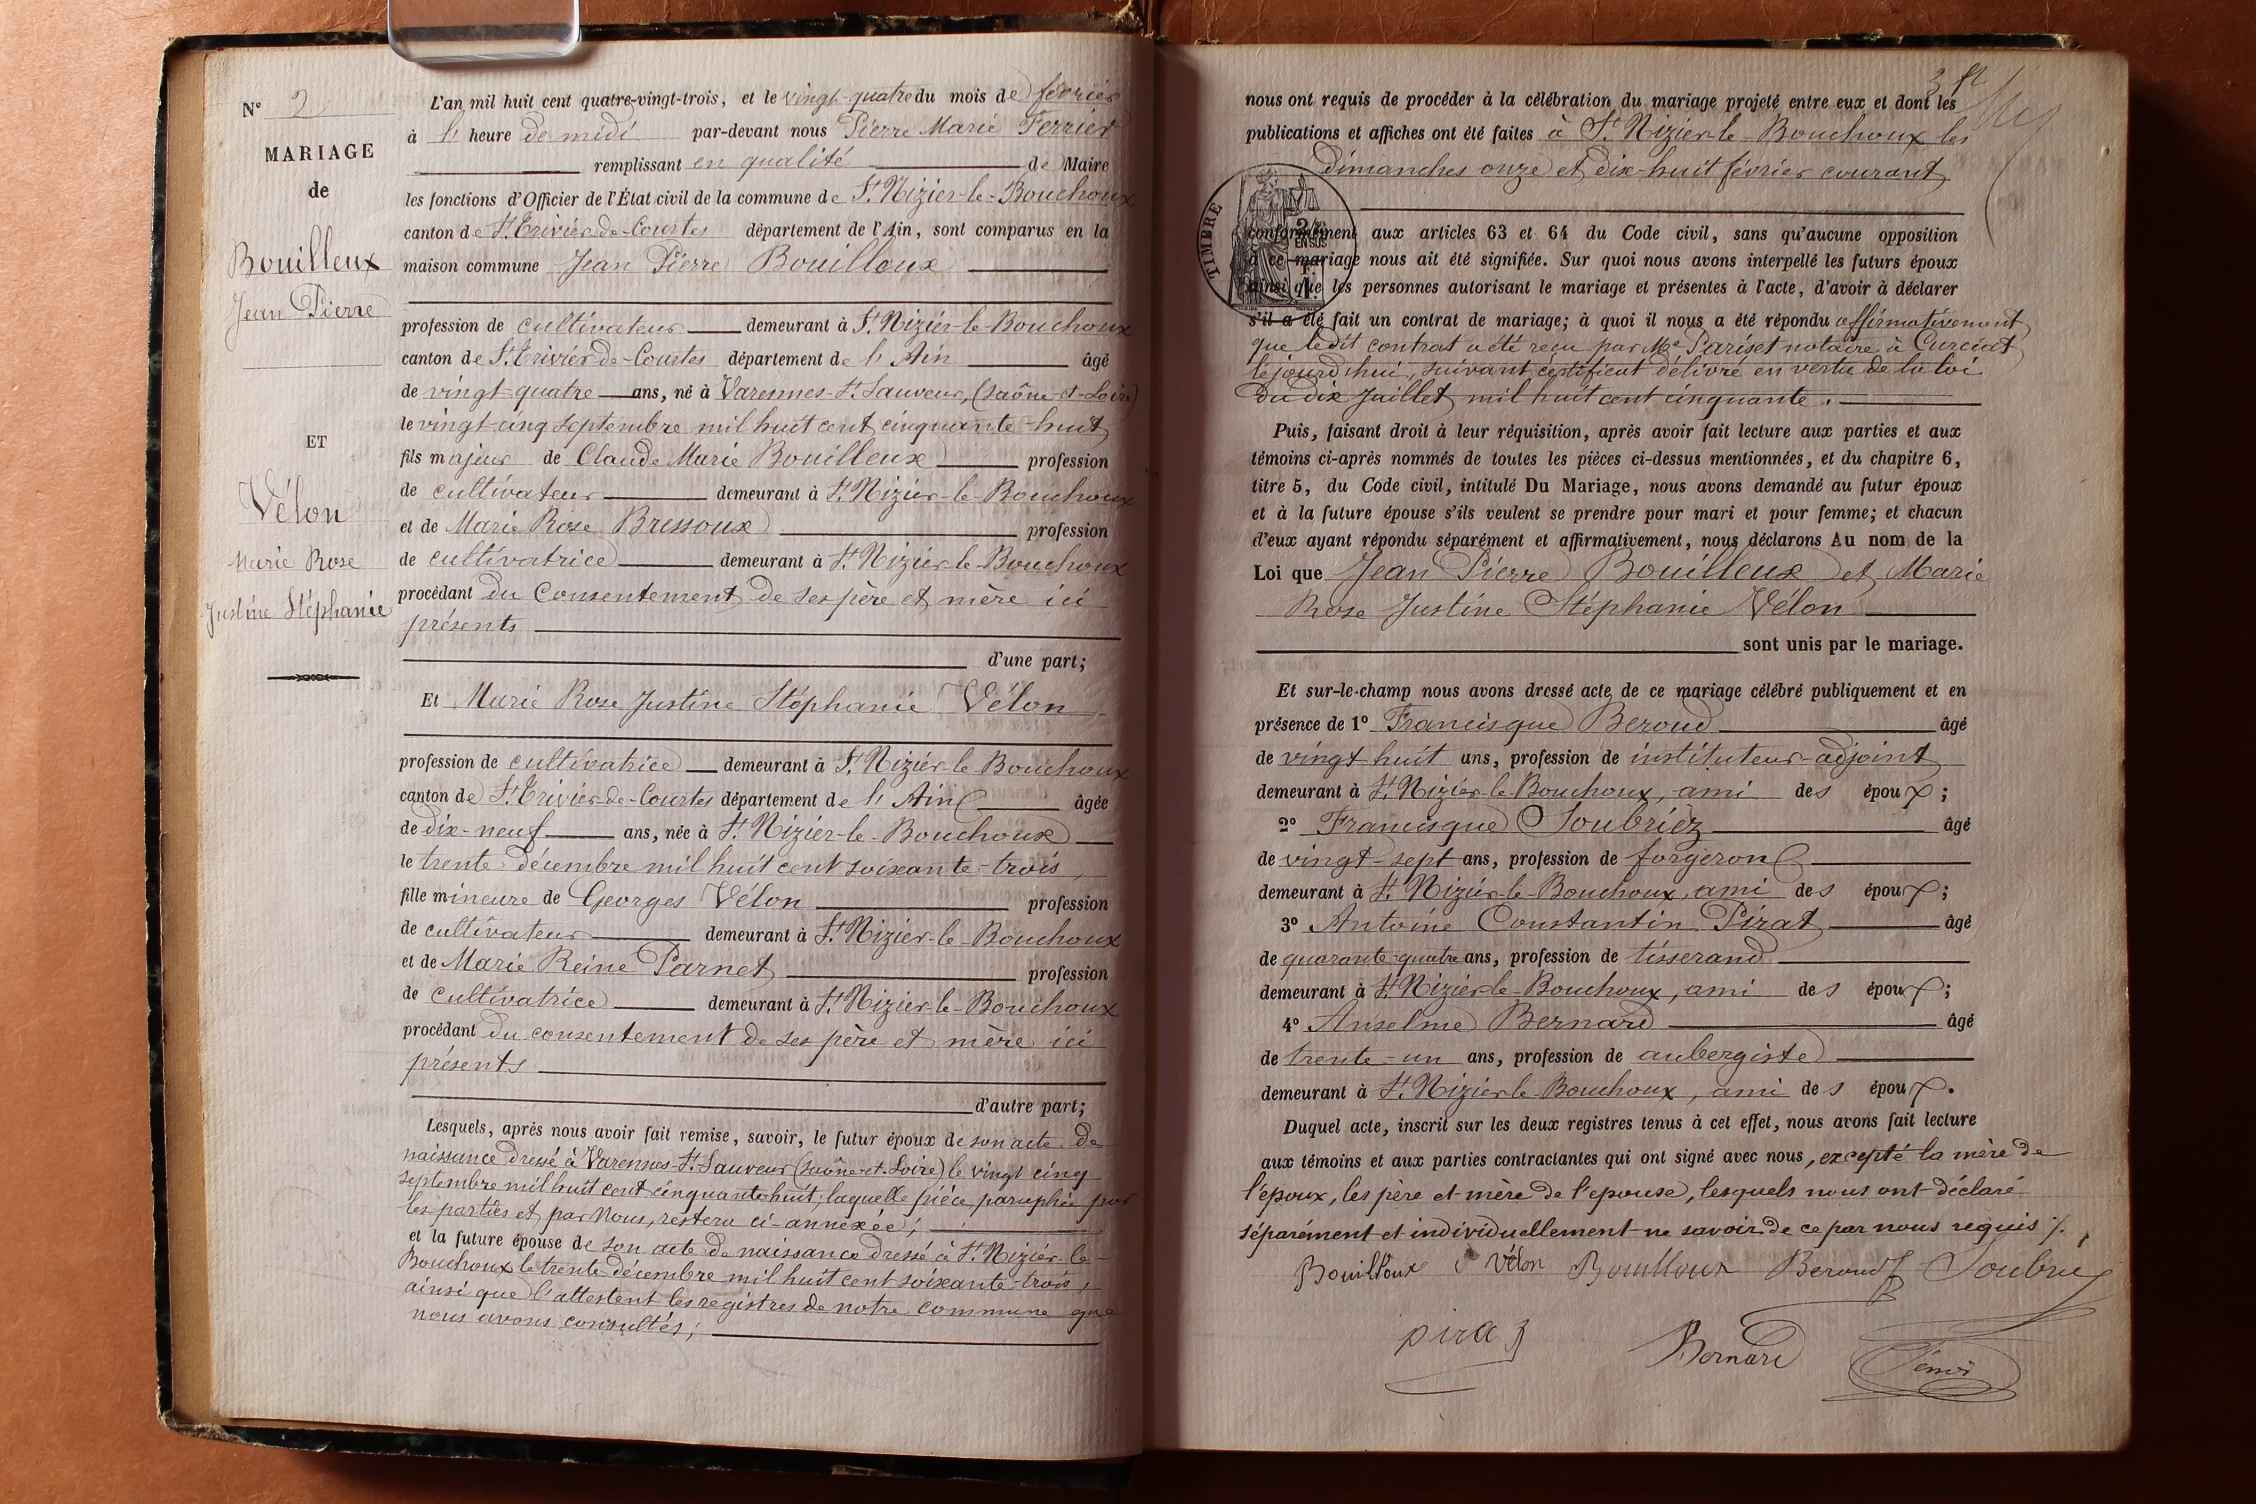 N° 2
MARIAGE
de
Bouilleux
Jean Pierre
ET
Vélon
Marie Rose
Justine Stéphanie
L'an mil huit cent quatre-vingt-trois, et le vingt-quatre du mois de février
à l' heure de midi par-devant nous Pierre Marie Ferrier
remplissant en qualité de Maire
les fonctions d'Officier de l'État civil de la commune de St Nizier-le-Bouchoux
canton de St Trivier-de-Courtes département de l'Ain, sont comparus en la
maison commune Jean Pierre Bouilloux
profession de cultivateur demeurant à St Nizier-le-Bouchoux
canton de St Trivier-de-Courtes département de l'Ain âgé
de vingt-quatre ans, né à Varennes-St Sauveur, (Saône-et-Loire)
le vingt-cinq septembre mil huit cent cinquante-huit
fils majeur de Claude Marie Bouilleux profession
de cultivateur demeurant à St Nizier-le-Bouchoux
et de Marie Rose Bressoux profession
de cultivatrice demeurant à St Nizier-le-Bouchoux
procédant du consentement de ses père et mère ici
présents
d'une part;
Et Marie Rose Justine Stéphanie Vélon
profession de cultivatrice demeurant à St Nizier-le-Bouchoux
canton de St Trivier-de-Courtes département de l'Ain âgée
de dix-neuf ans, née à St Nizier-le-Bouchoux
le trente décembre mil huit cent soixante-trois,
fille mineure de Georges Vélon profession
de cultivateur demeurant à St Nizier-le-Bouchoux
et de Marie Reine Parnet profession
de cultivatrice demeurant à St Nizier-le-Bouchoux
procédant du consentement de ses père et mère ici
présents
d'autre part;
Lesquels, après nous avoir fait remise, savoir, le futur époux de son acte de
naissance dressé à Varennes-St Sauveur (Saône-et-Loire) le vingt cinq
septembre mil huit cent cinquante-huit; laquelle pièce paraphée par
les parties et par Nous, restera ci-annexée;
et la future épouse de son acte de naissance dressé à St Nizier-le-
Bouchoux le trente décembre mil huit cent soixante-trois,
ainsi que l'attestent les registres de notre commune que
nous avons consultés;
nous ont requis de procéder à la célébration du mariage projeté entre eux et dont les
publications et affiches ont été faites à St Nizier-le-Bouchoux les
dimanches onze et dix-huit février courant
TIMBRE
conformément aux articles 63 et 64 du Code civil, sans qu'aucune opposition
à ce mariage nous ait été signifiée. Sur quoi nous avons interpellé les futurs époux
ainsi que les personnes autorisant le mariage et présentes à l'acte, d'avoir à déclarer
s'il a été fait un contrat de mariage; à quoi il nous a été répondu affirmativement
que ledit contrat a été reçu par Me Pariset notaire à Curciat
lejourd'hui, suivant certificat délivré en vertu de la loi
du dix Juillet mil huit cent cinquante.
Puis, faisant droit à leur réquisition, après avoir fait lecture aux parties et aux
témoins ci-après nommés de toutes les pièces ci-dessus mentionnées, et du chapitre 6,
titre 5, du Code civil, intitulé Du Mariage, nous avons demandé au futur époux
et à la future épouse s'ils veulent se prendre pour mari et pour femme; et chacun
d'eux ayant répondu séparément et affirmativement, nous déclarons Au nom de la
Loi que Jean Pierre Bouilleux et Marie
Rose Justine Stéphanie Vélon
sont unis par le mariage.
Et sur-le-champ nous avons dressé acte de ce mariage célébré publiquement et en
présence de 1° Francisque Beroud âgé
de vingt huit ans, profession de instituteur-adjoint
demeurant à St Nizier-le-Bouchoux, ami des époux;
2° Francisque Soubriez âgé
de vingt-sept ans, profession de forgeron
demeurant à St Nizier-le-Bouchoux, ami des époux;
3° Antoine Constantin Pirat âgé
de quarante-quatre ans, profession de tisserand
demeurant à St Nizier-le-Bouchoux, ami des époux;
4° Anselme Bernard âgé
de trente-un ans, profession de aubergiste
demeurant à St Nizier-le-Bouchoux, ami des époux.
Duquel acte, inscrit sur les deux registres tenus à cet effet, nous avons fait lecture
aux témoins et aux parties contractantes qui ont signé avec nous, excepté la mère de
l'époux, les père et mère de l'epouse, lesquels nous ont déclaré
séparément et individuellement ne savoir de ce par nous requis ./.
Bouilloux S Vélon Bouilloux Beroud
Bernard